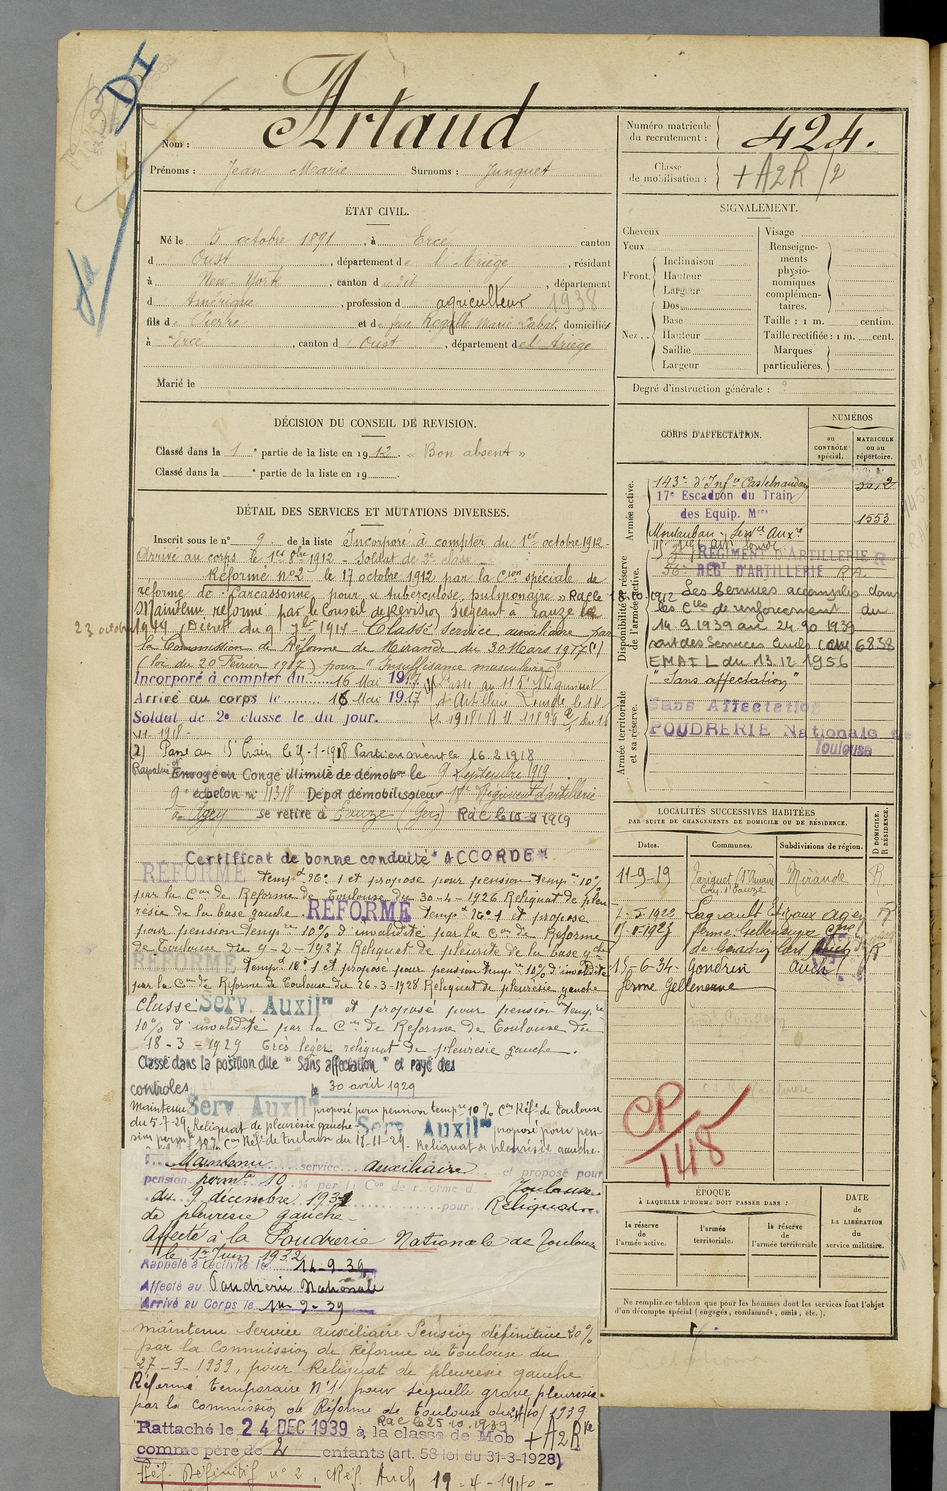 DI
Nom : Artaud
Prénoms : Jean Marie Surnoms : Junquet
ÉTAT CIVIL.
Né le 5 octobre 1891, à Ercé canton
d Oust, département de l'Ariège, résidant
à New-York, canton d dit, département
d Amérique, profession d agriculteur 1938
fils de Pierre et de feue Rogalle Marie Labat, domiciliés
à Ercé, canton d Oust, département de l'Ariège
Marié le
DÉCISION DU CONSEIL DE REVISION.
Classé dans la 1e partie de la liste en 1912. « Bon absent »
Classé dans la e partie de la liste en 19
DÉTAIL DES SERVICES ET MUTATIONS DIVERSES.
Inscrit sous le n° 9 de la liste Incorporé à compter du 1er octobre 1912.
Arrivé au corps le 1er 8bre 1912 - Soldat de 2e classe
Réformé n° 2 le 17 octobre 1912 par la Con spéciale de
réforme de Carcassonne pour « tuberculose pulmonaire » Rac le
Maintenu réformé par le Conseil de Revision siégeant à Eauze le
23 octobre 1914 (Décret du 9 7bre 1914 - Classé service auxiliaire par
la Commission de Réforme de Mirande du 30 Mars 1917
(loi du 20 Février 1917) pour "Insuffisance musculaire"
Incorporé à compter du 16 Mai 1917. Passé au 118e Régiment
Arrivé au corps le 16 Mai 1917 d'Artillerie Lourde le
Soldat de 2e classe le du jour.
2) Passé au Train le 1918
Envoyé en Congé illimité de démobon le 9 Septembre 1919
9e échelon n° 11318 Dépôt démobilisateur Régiment d'artillerie
se retire à Eauze (Gers) Rac le 10-9-1919
Certificat de bonne conduite "ACCORDÉ"
RÉFORMÉ Tempre n° 1 et proposé pour pension tempre 10%
par la Con de Réforme de Toulouse du 30-4-1926 Reliquat de pleu
résie de la base gauche. RÉFORMÉ Tempre n° 1 et proposé
pour pension tempre 10% d'invalidité par la Con de Réforme
de Toulouse du 4-2-1927 Reliquat de pleurite de la base gche
RÉFORMÉ Tempre n° 1 et proposé pour pension tempre 10% d'invalidité
par la Con de Réforme de Toulouse du 26-3-1928 Reliquat de pleurésie gauche
Classé Serv. Auxilre et proposé pour pension Tempre
10% d'invalidité par la Con de Réforme de Toulouse du
18-3-1929 Très léger reliquat de pleurésie gauche.
Classé dans la position dite "Sans affectation" et rayé des
contrôles le 30 avril 1929
Maintenu Serv. Auxilre proposé pour pension tempre 10% Con Réf. de Toulouse
du 5-7-29. Reliquat de pleurésie gauche. Serv. Auxilre proposé pour pen
sion permte 10% Con Réf. de Toulouse du 17-11-29. Reliquat de pleurésie gauche.
Maintenu service auxiliaire et proposé pour
pension permte 10 % par la Con de réforme d Toulouse
du 9 décembre 1931 pour Reliquat
de pleurésie gauche
Affecté à la Poudrerie Nationale de Toulouse
le 1er Juin 1932
Rappelé à l'activité le 14-9-39
Affecté au Poudrerie Nationale
Arrivé au Corps le 14-9-39
Maintenu Service auxiliaire Pension définitive 20%
par la Commission de Réforme de Toulouse du
27-9-1939, pour Reliquat de pleurésie gauche
Réformé temporaire N°1 pour séquelle grave pleurésie
par la Commission de Réforme de Toulouse du 24/10/1939
Rac le 25.10.1939
Rattaché le 24 DEC 1939 à la classe de Mob +A2R
comme père de 2 enfants (art. 58 loi du 31-3-1928)
Réf. Définitif n° 2, Réf. Auch 19-4-1940 -
Numéro matricule du recrutement : 424.
Classe de mobilisation : +A2R/2
SIGNALEMENT.
Cheveux
Yeux
Front. Inclinaison
Hauteur
Largeur
Nez. Dos
Base
Hauteur
Saillie
Largeur
Visage
Renseignements physionomiques complémentaires.
Taille : 1 m. centim.
Taille rectifiée : 1 m. cent.
Marques particulières.
Degré d'instruction générale : ?
CORPS D'AFFECTATION.
NUMÉROS
au CONTRÔLE spécial.
MATRICULE ou au répertoire.
Armée active.
143e d'Infie Castelnaudary
17e Escadron du Train
des Equip. Mres 1553
Montauban Servce Auxre
Disponibilité et réserve de l'armée active.
RÉGIMENT D'ARTILLERIE
56e REGt D'ARTILLERIE RA
Les Services accomplis dans
les Cies de renforcement du
14.9.1939 au 24.10.1939
sont des Services Civils (6838
EMAT L du 13.12.1956
"Sans affectation"
Armée territoriale et sa réserve.
Sans Affectation
POUDRERIE Nationale de
Toulouse
LOCALITÉS SUCCESSIVES HABITÉES
PAR SUITE DE CHANGEMENTS DE DOMICILE OU DE RÉSIDENCE.
Dates. Communes. Subdivisions de région. D DOMICILE. R RÉSIDENCE.
11-9-19 Mirande R
1922 Lagrault Agen
1927 ferme Gelleneuve
15-6-34 Gondrin Auch R
ferme Gelleneuve
CP/148
ÉPOQUE
À LAQUELLE L'HOMME DOIT PASSER DANS :
la réserve de l'armée active.
l'armée territoriale.
la réserve de l'armée territoriale
DATE DE LA LIBÉRATION du service militaire.
Ne remplir ce tableau que pour les hommes dont les services font l'objet
d'un décompte spécial (engagés, condamnés, omis, etc.).